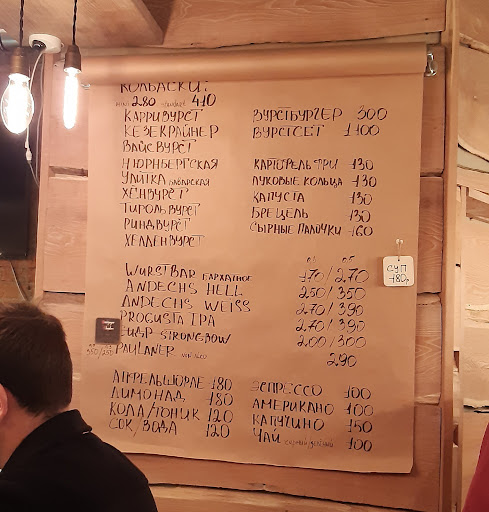 КОЛБАСКИ:
мини 280 стандарт 410
КАРРИВУРСТ
КЕЗЕКРАЙНЕР
ВАЙСВУРСТ
НЮРНБЕРГСКАЯ
УЛИТКА БАВАРСКАЯ
ХЁНВУРСТ
ТИРОЛЬВУРСТ
РИНДВУРСТ
ХЕЛЛЕНВУРСТ
ВУРСТБУРГЕР 300
ВУРСТСЕТ 1100
КАРТОФЕЛЬ ФРИ 130
ЛУКОВЫЕ КОЛЬЦА 130
КАПУСТА 130
БРЕЦЕЛЬ 130
СЫРНЫЕ ПАЛОЧКИ 160
WURSTBAR БАРХАТНОЕ 170/270
ANDECHS HELL 250/350
ANDECHS WEISS 270/390
PROGUSTA IPA 270/390
СИДР STRONGBOW 200/300
PAULANER 290
350/250
СУП
180р
АПФЕЛЬШОРЛЕ 180
ЛИМОНАД 180
КОЛА/ТОНИК 120
СОК/ВОДА 120
ЭСПРЕССО 100
АМЕРИКАНО 100
КАПУЧИНО 150
ЧАЙ 100